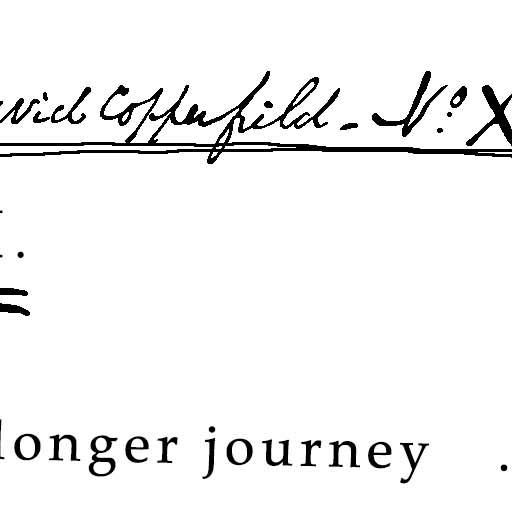 avid Copperfield - No X
.
longer journey .